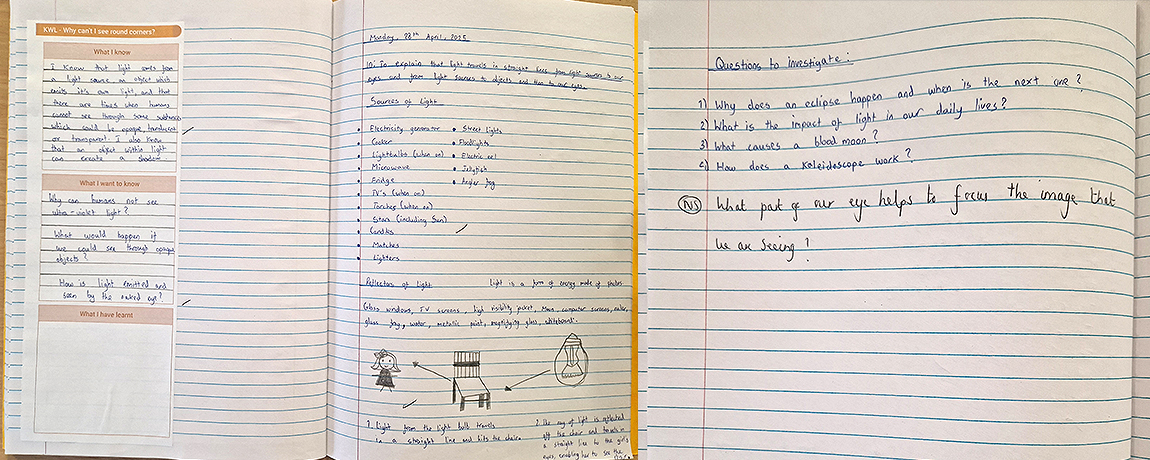 KWL - Why can't I see round corners?
What I know
I know that light comes from
a light source an object which
emits it's own light, and that
there are times when humans
cannot see through some substances
which could be opaque, translucent
or transparent. I also know
that an object within light
can create a shadow
What I want to know
Why can humans not see
ultra-violet light?
What would happen if
we could see through opaque
objects?
How is light emitted and
seen by the naked eye?
What I have learnt
Monday, 28th April, 2025
To explain that light travels in straight lines from light sources to our
eyes and from light sources to objects and then to our eyes.
Sources of Light
• Electricity generator
• Cooker
• Lightbulbs (when on)
• Microwave
• Fridge
• TV's (when on)
• Torches (when on)
• Stars (including Sun)
• Candles
• Matches
• Lighters
• Street lights
• Floodlights
• Electric eel
• Jellyfish
• Angler
Reflectors of light
Light is a form of energy made of photons
Glass windows, TV screens, high visibility jacket, Moon, computer screens,
glass, water, metallic paint, magnifying glass, whiteboard.
1. Light from the light bulb travels
in a straight line and hits the chair.
2. The ray of light is reflected
off the chair and travels in
a straight line to the girl's
eyes, enabling her to see the
Questions to investigate:
1) Why does an eclipse happen and when is the next one?
2) What is the impact of light in our daily lives?
3) What causes a blood moon?
4) How does a Keleidoscope work?
NS What part of our eye helps to focus the image that
we are seeing?